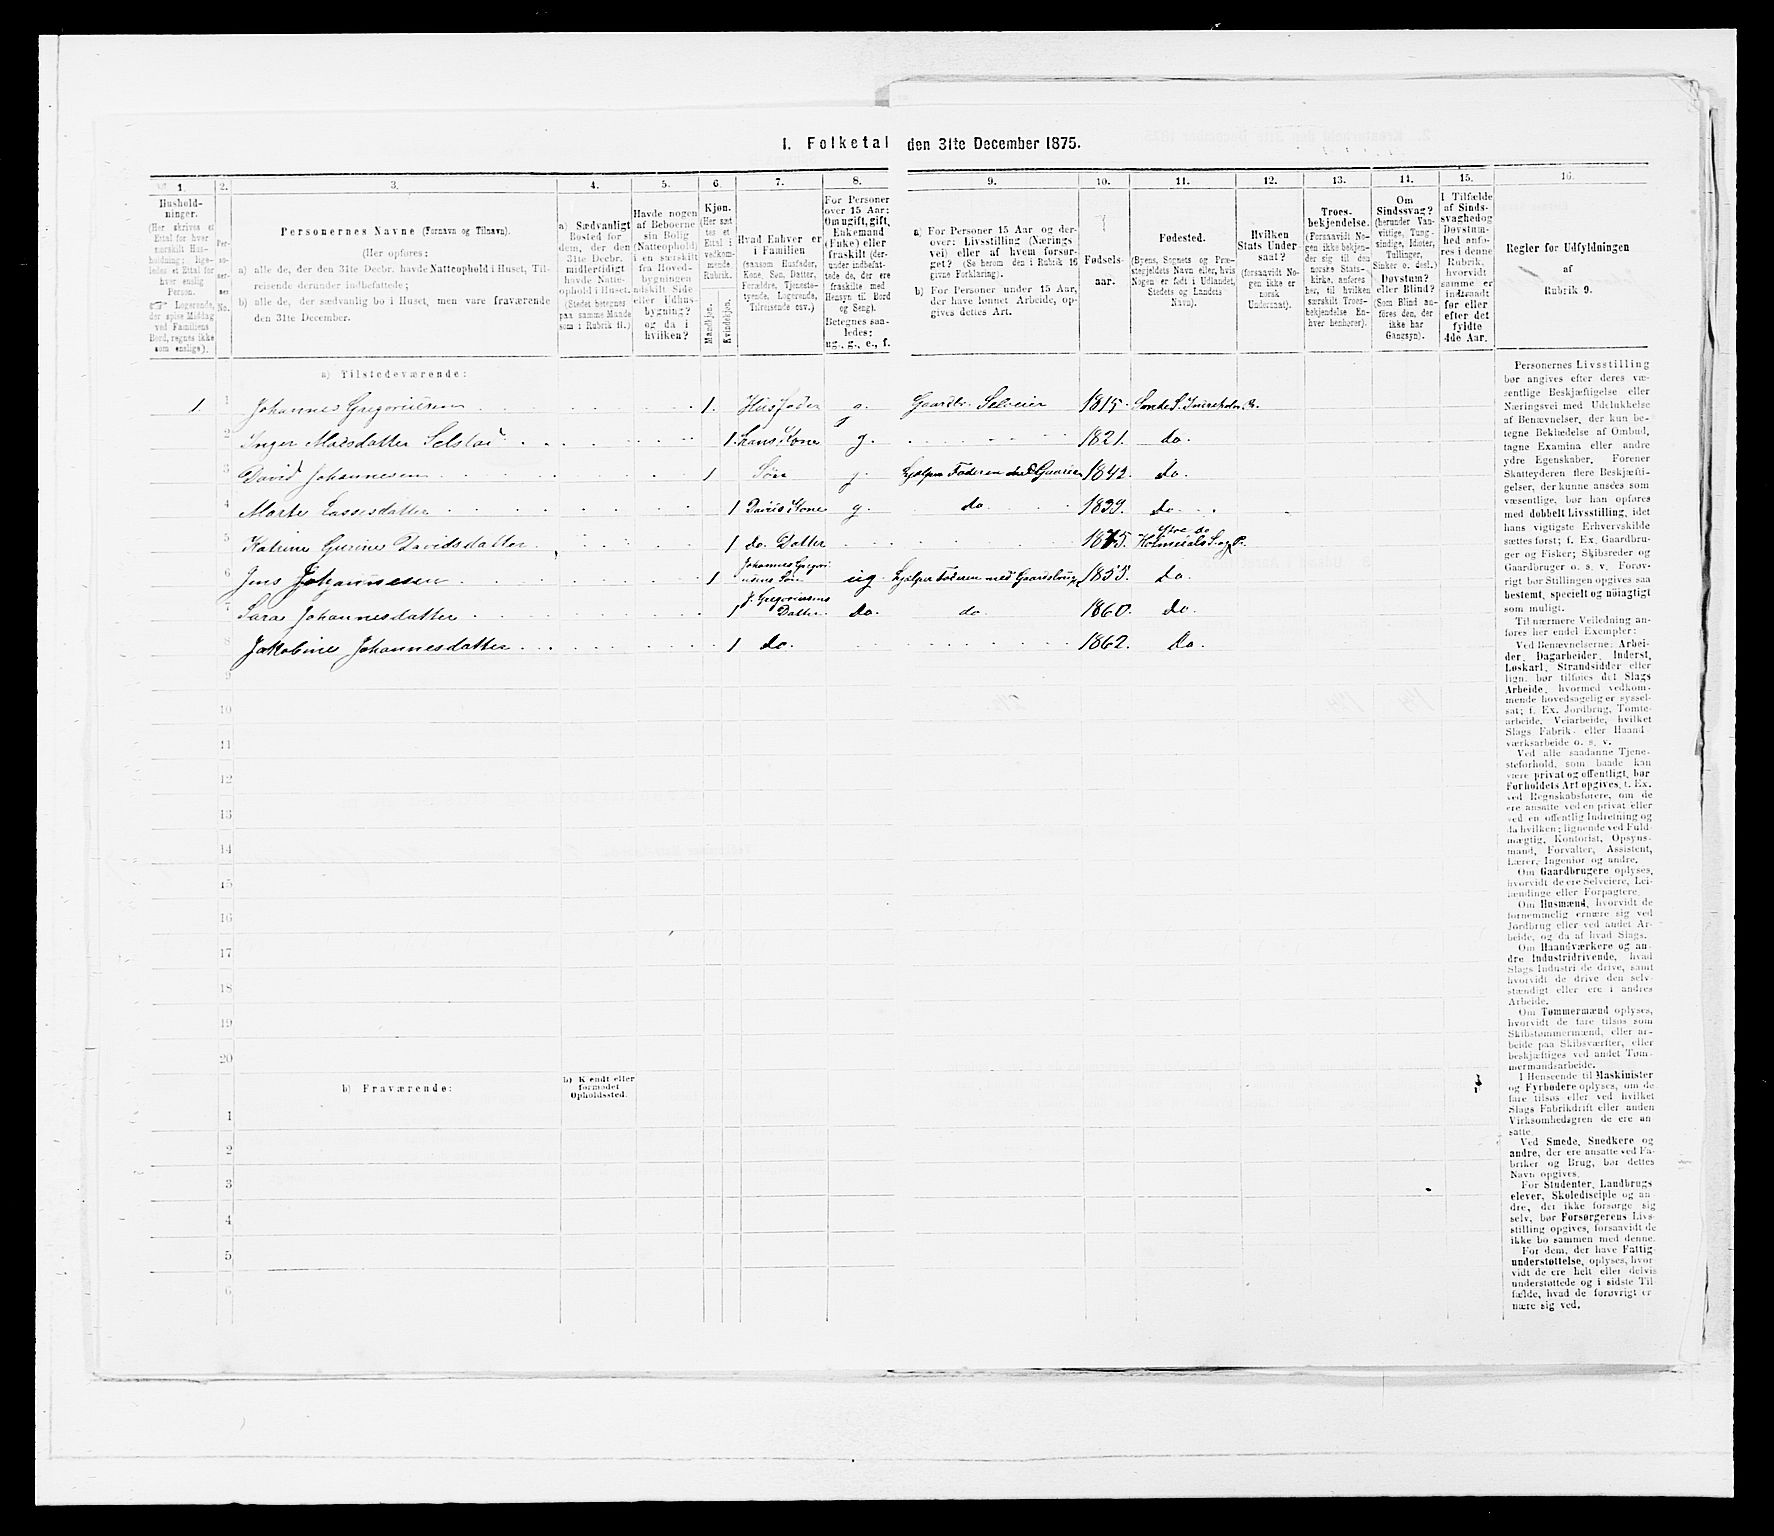 I. Folketal den 31te December 1875.
1. 2. 3. 4. 5. 6. 7. 8. 9. 10. 11. 12. 13. 14. 15. 16.
Husholdninger.
(Her skrives et Ettal for hver særskilt Husholdning; ligeledes et Ettal for hver enslig Person.
Logerende, der spise Middag ved Familiens Bord, regnes ikke som enslige).
Personernes No.
Personernes Navne (Fornavn og Tilnavn).
(Her opføres:
a) alle de, der den 31te Decbr. havde Natteophold i Huset, Tilreisende derunder indbefattede;
b) alle de, der sædvanlig bo i Huset, men vare fraværende den 31te December.
a) Sædvanligt Bosted for dem, der den 31te Decbr. midlertidigt havde Natteophold i Huset.
(Stedet betegnes paa samme Maade som i Rubrik 11.)
Havde nogen af Beboerne sin Bolig (Natteophold) i en særskilt fra Hovedbygningen adskilt Side eller Udhusbygning? og da i hvilken?
Kjøn.
(Her sættes et Ettal i vedkommende Rubrik.
Mandkjøn. Kvindekjøn.
Hvad Enhver er i Familien
(saasom Husfader, Kone, Søn, Datter, Forældre, Tjenestetyende, Logerende, Tilreisende osv.)
For Personer over 15 Aar: Om ugift, gift, Enkemand (Enke) eller fraskilt (derunder indbefattede de, der ere fraskilte med Hensyn til Bord og Seng).
Betegnes saaledes: ug., g., e., f.
a) For Personer 15 Aar og derover: Livsstilling (Næringsvei) eller af hvem forsørget? (Se herom den i Rubrik 16 givne Forklaring).
b) For Personer under 15 Aar, der have lønnet Arbeide, opgives dettes Art.
Fødselsaar.
Fødested.
(Byens, Sognets og Præstegjeldets Navn eller, hvis Nogen er født i Udlandet, Stedets og Landets Navn).
Hvilken Stats Undersaat?
(forsaavidt Nogen ikke er norsk Undersaat).
Troesbekjendelse.
(Forsaavidt Nogen ikke bekjender sig til den norske Statskirke, anføres her, til hvilken særskilt Troesbekjendelse Enhver henhører).
Om Sindssvag?
(herunder Vanvittige, Tungsindige, Idioter, Tullinger, Sinker o. desl.)
Døvstum? eller Blind?
(Som Blind anføres den, der ikke har Gangsyn).
I Tilfælde af Sindssvaghed og Døvstumhed anføres i denne Rubrik, hvorvidt samme er indtraadt før eller efter det fyldte 4de Aar.
Regler for Udfyldningen af Rubrik 9.
a) Tilstedeværende:
1. 1 Johannes Gregoriussen 1. Husfader g. Gaardbr. Selveier 1815
2 Inger Madsdatter Selstad 1. hans Kone g. 1821. do.
3 David Johannesen 1 Søn g. 1842. do.
4 Marte Lassesdatter 1 Davids Kone g. do 1839. do.
5 Katrine Gurine Davidsdatter 1 do. Datter 1875.
6 Jens Johannesen 1 Johannes Gregoriusens Søn ug hjelper Faderen med Gaardsbrug 1855. do.
7 Sara Johannesdatter 1 J. Gregoriusens Datter do. do 1860. do.
8 Jakobine Johannesdatter 1 do. 1862. do.
9
10
11
12
13
14
15
16
17
18
19
20
b) Fraværende: b) Kjendt eller formodet Opholdssted.
1
2
3
4
5
6
Personernes Livsstilling
bør angives efter deres væsentlige Beskjæftigelse eller
Næringsvei med Udelukkelse
af Benævnelser, der kun betegne Beklædelse af Ombud,
tagne Examina eller andre
ydre Egenskaber. Forener
Skatteyderen flere Beskjæftigelser, der kunne ansees som
væsentlige, bør han opføres
med dobbelt Livsstilling, idet
hans vigtigste Erhvervskilde
sættes først; f. Ex. Gaardbruger og Fisker; Skibsreder og
Gaardbruger o. s. v. Forøvrigt bør Stillingen opgives saa
bestemt, specielt og nøiagtigt
som muligt.
Til nærmere Veiledning anføres her endel Exempler:
Ved Benævnelserne: Arbeider, Dagarbeider, Inderst,
Løskarl, Strandsidder eller
lign. bør tilføies det Slags
Arbeide, hvormed vedkommende hovedsagelig er sysselsat; f. Ex. Jordbrug, Tomtearbeide, Veiarbeide, hvilket
Slags Fabrik- eller Haandværksarbeide o. s. v.
Ved alle saadanne Tjenesteforhold, som baade kan
være privat og offentligt, bør
Forholdets Art opgives, f. Ex.
ved Regnskabsførere, om de
ere ansatte ved en privat eller
ved en offentlig Indretning og
da hvilken; lignende ved Fuldmægtig, Kontorist, Opsynsmand, Forvalter, Assistent,
Lærer, Ingeniør og andre.
Om Gaardbrugere oplyses,
hvorvidt de ere Selveiere, Leilændinge eller Forpagtere.
Om Husmænd, hvorvidt de
fornemmelig ernære sig ved
Jordbrug eller ved andet Arbeide, og da af hvad Slags.
Om Haandværkere og andre Industridrivende, hvad
Slags Industri de drive, samt
hvorvidt de drive den selvstændigt eller ere i andres
Arbeide.
Om Tømmermænd oplyses,
hvorvidt de fare tilsøs som
Skibstømmermænd, eller arbeide paa Skibsværfter, eller
beskjæftiges ved andet Tømmermandsarbeide.
I Henseende til Maskinister
og Fyrbødere oplyses, om de
fare tilsøs eller ved hvilket
Slags Fabrikdrift eller anden
Virksomhedsgren de ere ansatte.
Ved Smede, Snedkere og
andre, der ere ansatte ved Fabriker og Brug, bør dettes
Navn opgives.
For Studenter, Landbrugselever, Skoledisciple og andre, der ikke forsørge sig
selv, bør Forsørgerens Livsstilling opgives, forsaavidt de
ikke bo sammen med denne.
For dem, der have Fattigunderstøttelse, oplyses, hvorvidt de ere helt eller delvis
understøttede og i sidste Tilfælde, hvad de forøvrigt ernære sig ved.